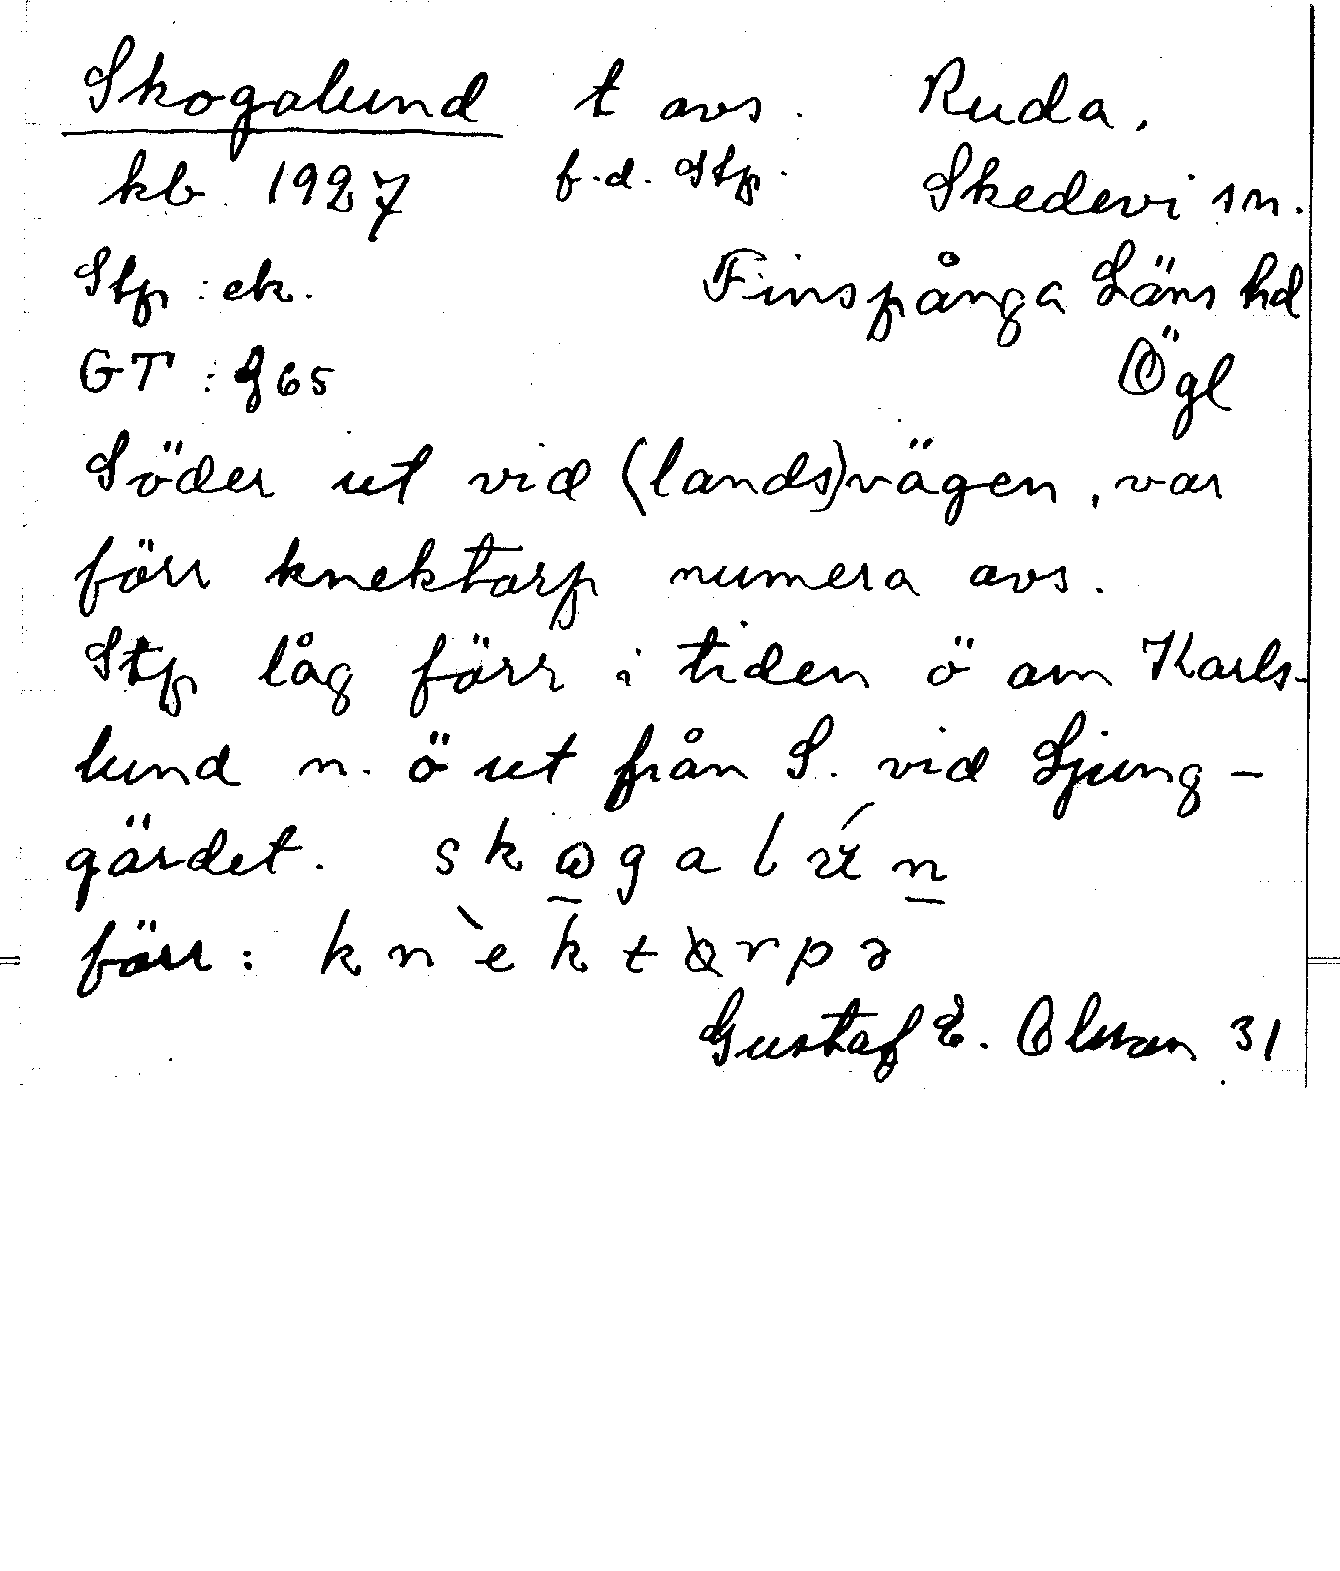 Skogalund t avs. Ruda.
kb 1927 f.d. Stp. Skedevi sn.
Stp : ek. Finspånga Läns hd
GT : 965 Ögl
Söder ut vid (lands)vägen, var
förr knektarp numera avs.
Stp låg förr i tiden ö om Karls-
lund n. ö ut från S. vid Ljung-
gärdet. skɷgalún
förr: kn`ektɑrpə
Gustaf E. Olsson 31